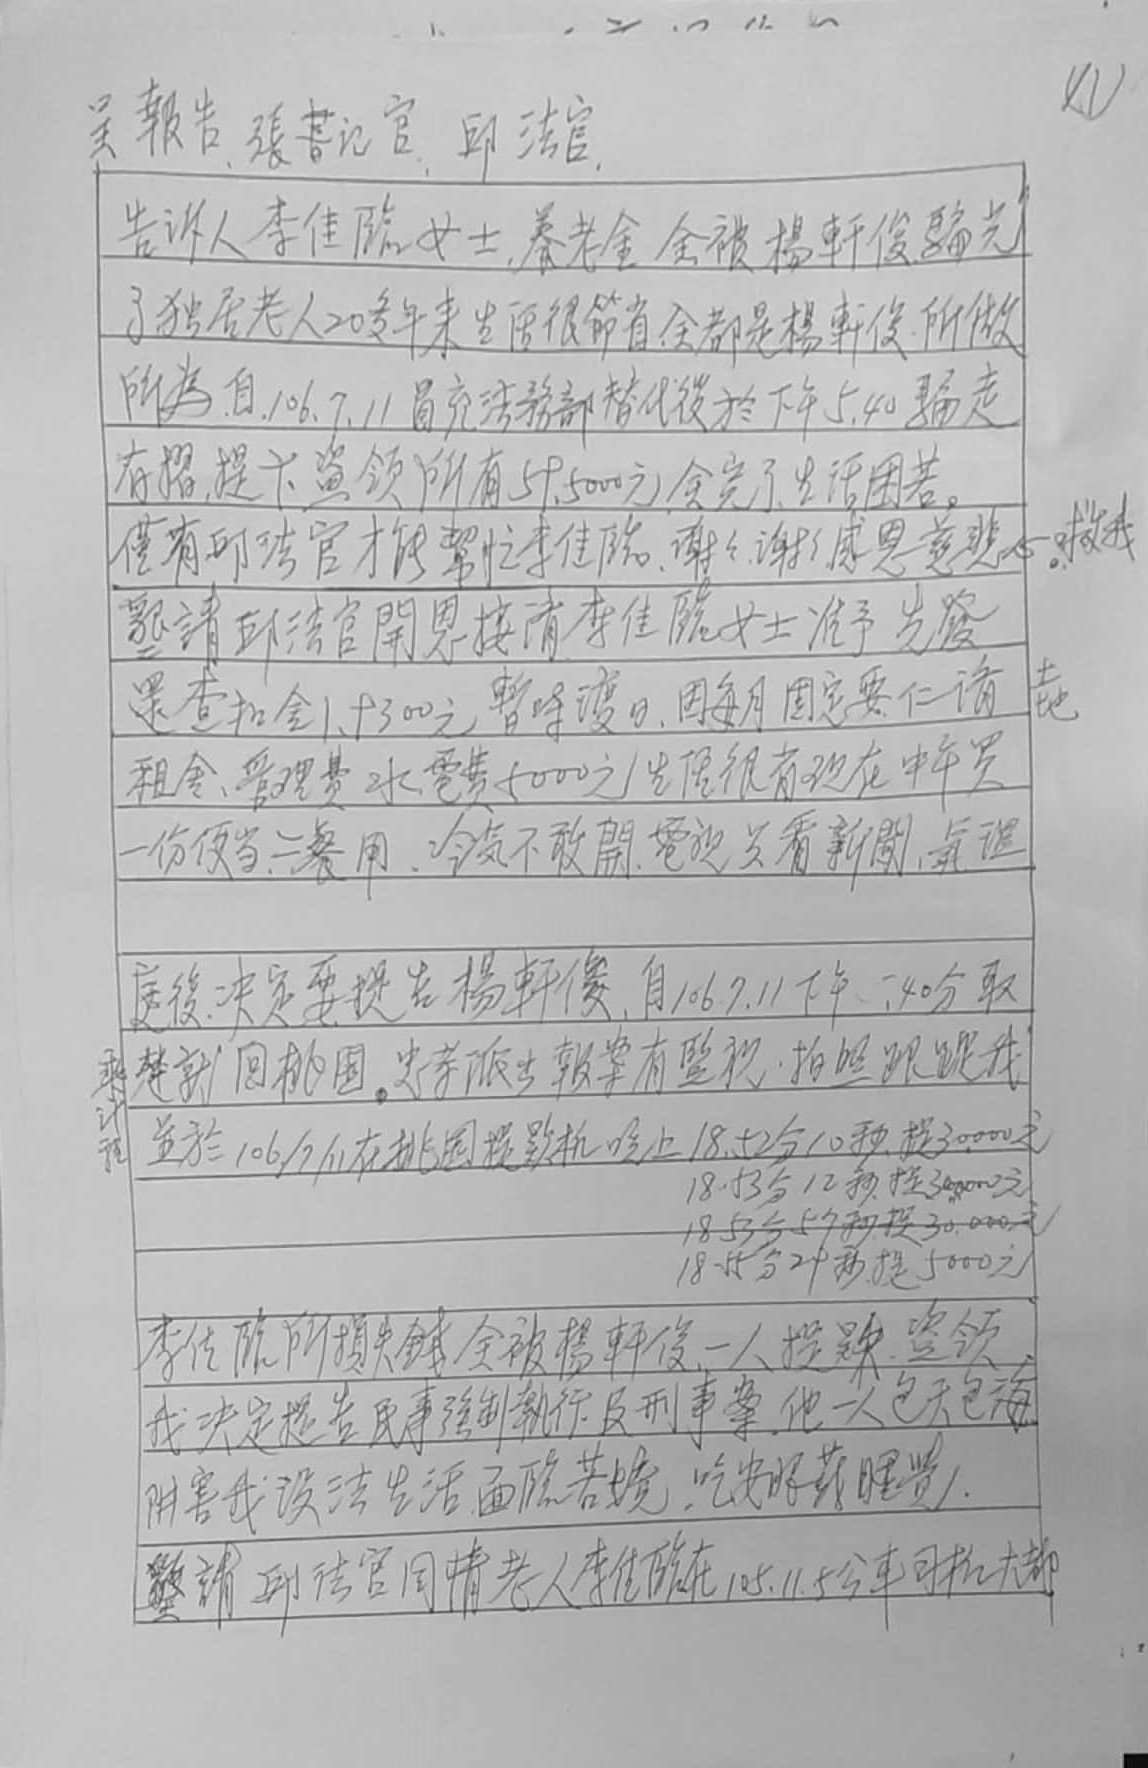 呈報告、張書記官、邱法官、
告訴人李佳臨女士、養老金全被楊軒俊騙光
了独居老人20多年来生活很節省全都是楊軒俊.所做
所為.自.106.7.11冒充法務部替代役於下午5.40騙走
存摺.提卡盜領所有 5000元全完了.生活困苦。
僅有邱法官才能幫忙李佳臨、謝々.謝々感恩慈悲心。救我
懇請邱法官開恩 李佳臨女士准予先發
還查扣金 300元暫時渡日.因每月固定要 土地
租金、管理費水電費5000元 現在中午買
一份便当二餐用.冷気不敢開.電視只看新聞、
庭後.決定要提告楊軒俊、自106.7.11下午 .40分取
回桃園。忠孝派出 報案有監視.拍照跟蹤我
乘計程
並於106/7/11在桃園提款机 18.52分10秒.提30.000元
18.53分12秒.提30.000元
18.53分57秒提30.000元
18.55分24秒.提5000元
李佳臨所損失錢全被楊軒俊.一人提 .盜領
我決定提告民事強制執行及刑事案.他一人包天包海
害我沒法生活.面臨苦境.吃安眠藥睡覺.
懇請邱法官同情老人李佳臨在105.11.5公車司机